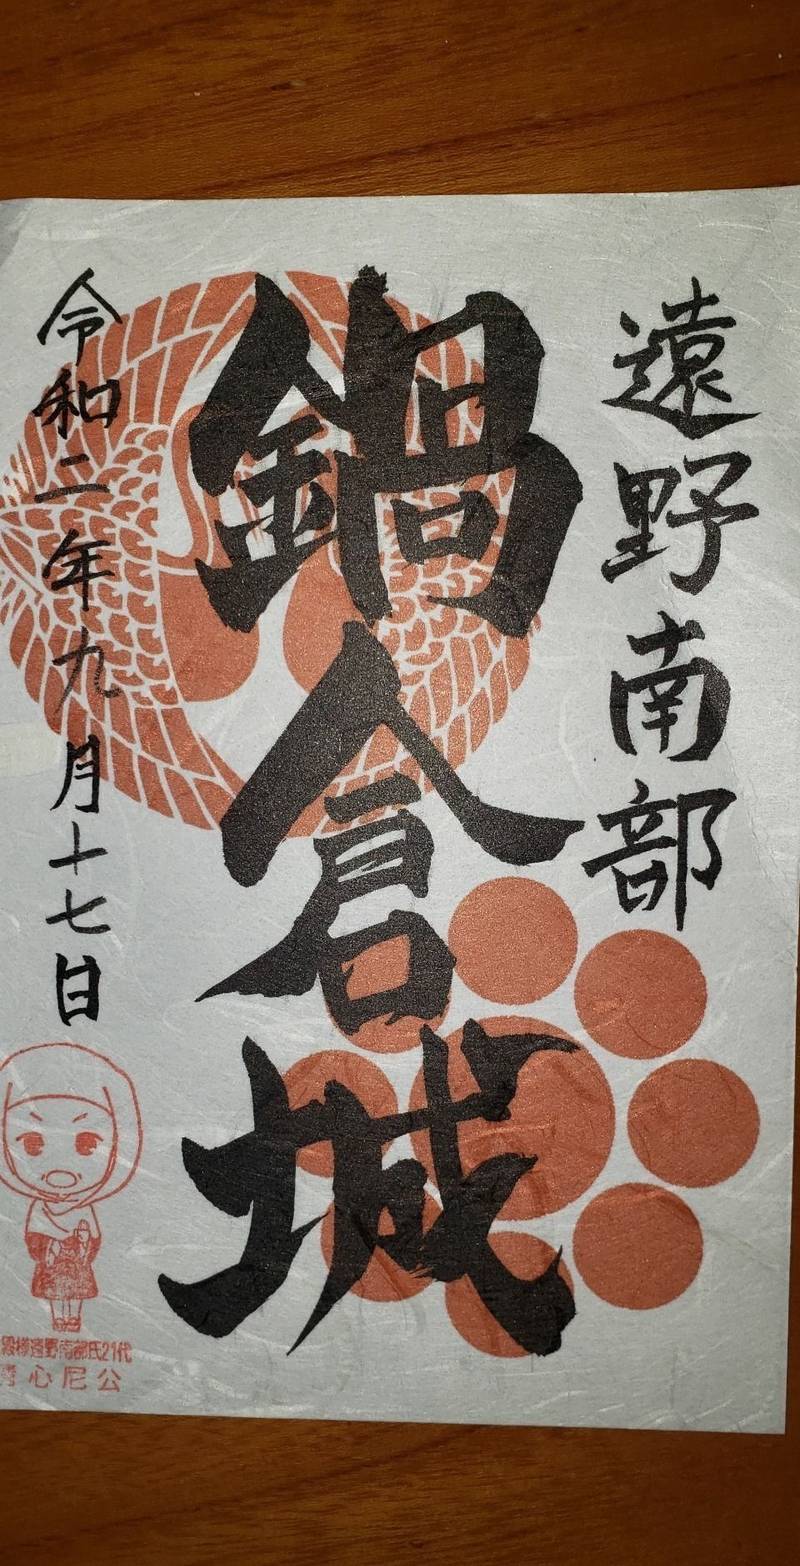 遠野南部
鍋倉城
令和二年九月十七日
殿様遠野南部氏21代
清心尼公